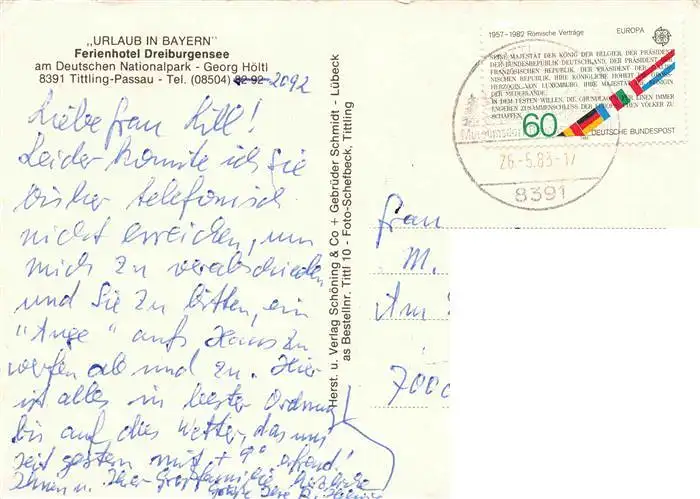 „URLAUB IN BAYERN"
Ferienhotel Dreiburgensee
am Deutschen Nationalpark - Georg Höltl
8391 Tittling-Passau - Tel. (08504) 82-92 - 2092
Liebe Frau Hill!
Leider konnte ich Sie
bisher telefonisch
nicht erreichen, um
mich zu verabschieden
und Sie zu bitten, ein
"Auge" aufs Haus zu
werfen ab und zu. Hier
ist alles in bester Ordnung
bis auf das Wetter, das uns
seit gestern mit + 9° erfreut!
Ihnen u. Ihrer Großfamilie herzliche
Grüße Ihre
Herst. u. Verlag Schöning & Co + Gebrüder Schmidt - Lübeck
as Bestellnr. Tittl 10 - Foto-Schefbeck, Tittling
1957-1982 Römische Verträge EUROPA
SEINE MAJESTÄT DER KÖNIG DER BELGIER, DER PRÄSIDENT
DER BUNDESREPUBLIK DEUTSCHLAND, DER PRÄSIDENT DER
FRANZÖSISCHEN REPUBLIK, DER PRÄSIDENT DER
REPUBLIK, IHRE KÖNIGLICHE HOHEIT DIE
HERZOGIN VON LUXEMBURG, IHRE MAJESTÄT DIE KÖNIGIN
DER NIEDERLANDE
IN DEM FESTEN WILLEN, DIE GRUNDLAGEN FÜR EINEN IMMER
ENGEREN ZUSAMMENSCHLUSS DER EUROPÄISCHEN VÖLKER ZU
SCHAFFEN
60 DEUTSCHE BUNDESPOST
Museumsdorf
26.-5.83-17
8391
Frau
M.
Am
7000